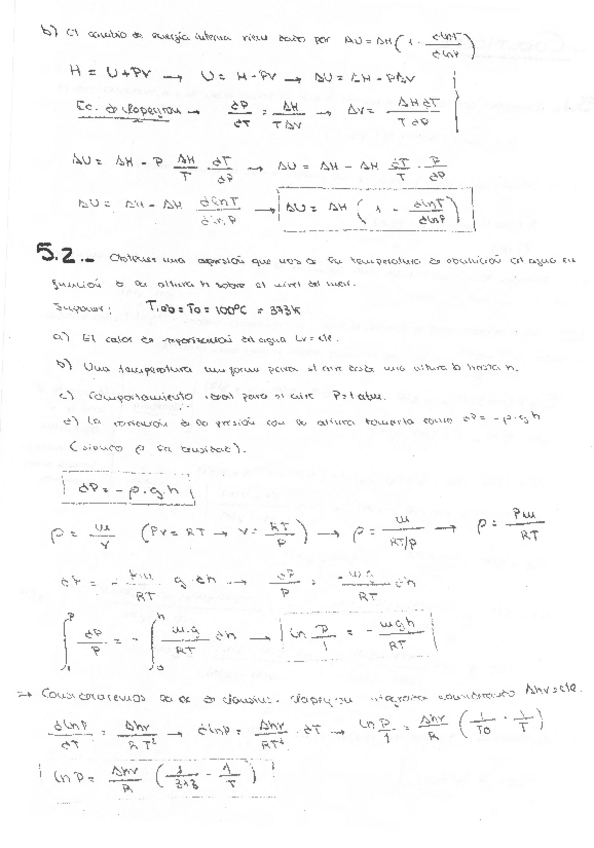 b) El cambio de energía interna viene dado por ΔU = ΔH (1 - dlnT/dlnP)
H = U + PV → U = H - PV → ΔU = ΔH - PΔV
Ec. de Clapeyron → dP/dT = ΔH/TΔV → ΔV = ΔH dT/T dP
ΔU = ΔH - P ΔH/T · dT/dP → ΔU = ΔH - ΔH dT/T · P/dP
ΔU = ΔH - ΔH dlnT/dlnP → ΔU = ΔH (1 - dlnT/dlnP)
5.2.- Obtener una expresión que nos de la temperatura de ebullición del agua en
función de la altura h sobre el nivel del mar.
Suponer: T,eb = To = 100ºC = 373K
a) El calor de vaporización del agua Lv = cte.
b) Una temperatura uniforme para el aire desde una altura 0 hasta h.
c) Comportamiento ideal para el aire P = 1 atm.
d) La variación de la presión con la altura tomarla como dP = -ρ·g·h
(siendo ρ la densidad).
dP = -ρ·g·h
ρ = m/V (PV = RT → V = RT/P) → ρ = m/RT/P → ρ = Pm/RT
dP = - Pm/RT g dh → dP/P = -mg/RT dh
∫₁ᴾ dP/P = - ∫₀ʰ m·g/RT dh → ln P/1 = - mgh/RT
⇒ Consideraremos la ec de Clausius-Clapeyron integrada considerando Δhv = cte.
dlnP/dT = Δhv/RT² → dlnP = Δhv/RT² · dT → ln P/1 = Δhv/R (1/To - 1/T)
ln P = Δhv/R (1/373 - 1/T)